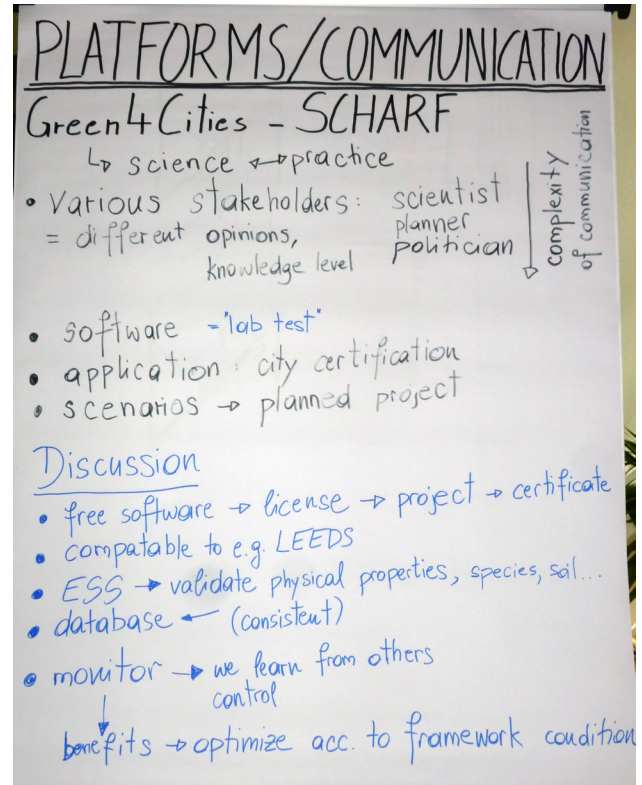 PLATFORMS/COMMUNICATION
Green4Cities - SCHARF
↳ science ↔ practice
• various stakeholders: scientist
planner
= different opinions, politician
knowledge level
complexity
of communication
• software = "lab test"
• application: city certification
• scenarios → planned project
Discussion
• free software → license → project → certificate
• compatable to e.g. LEEDS
• ESS → validate physical properties, species, soil...
• database ← (consistent)
• monitor → we learn from others
control
benefits → optimize acc. to framework condition